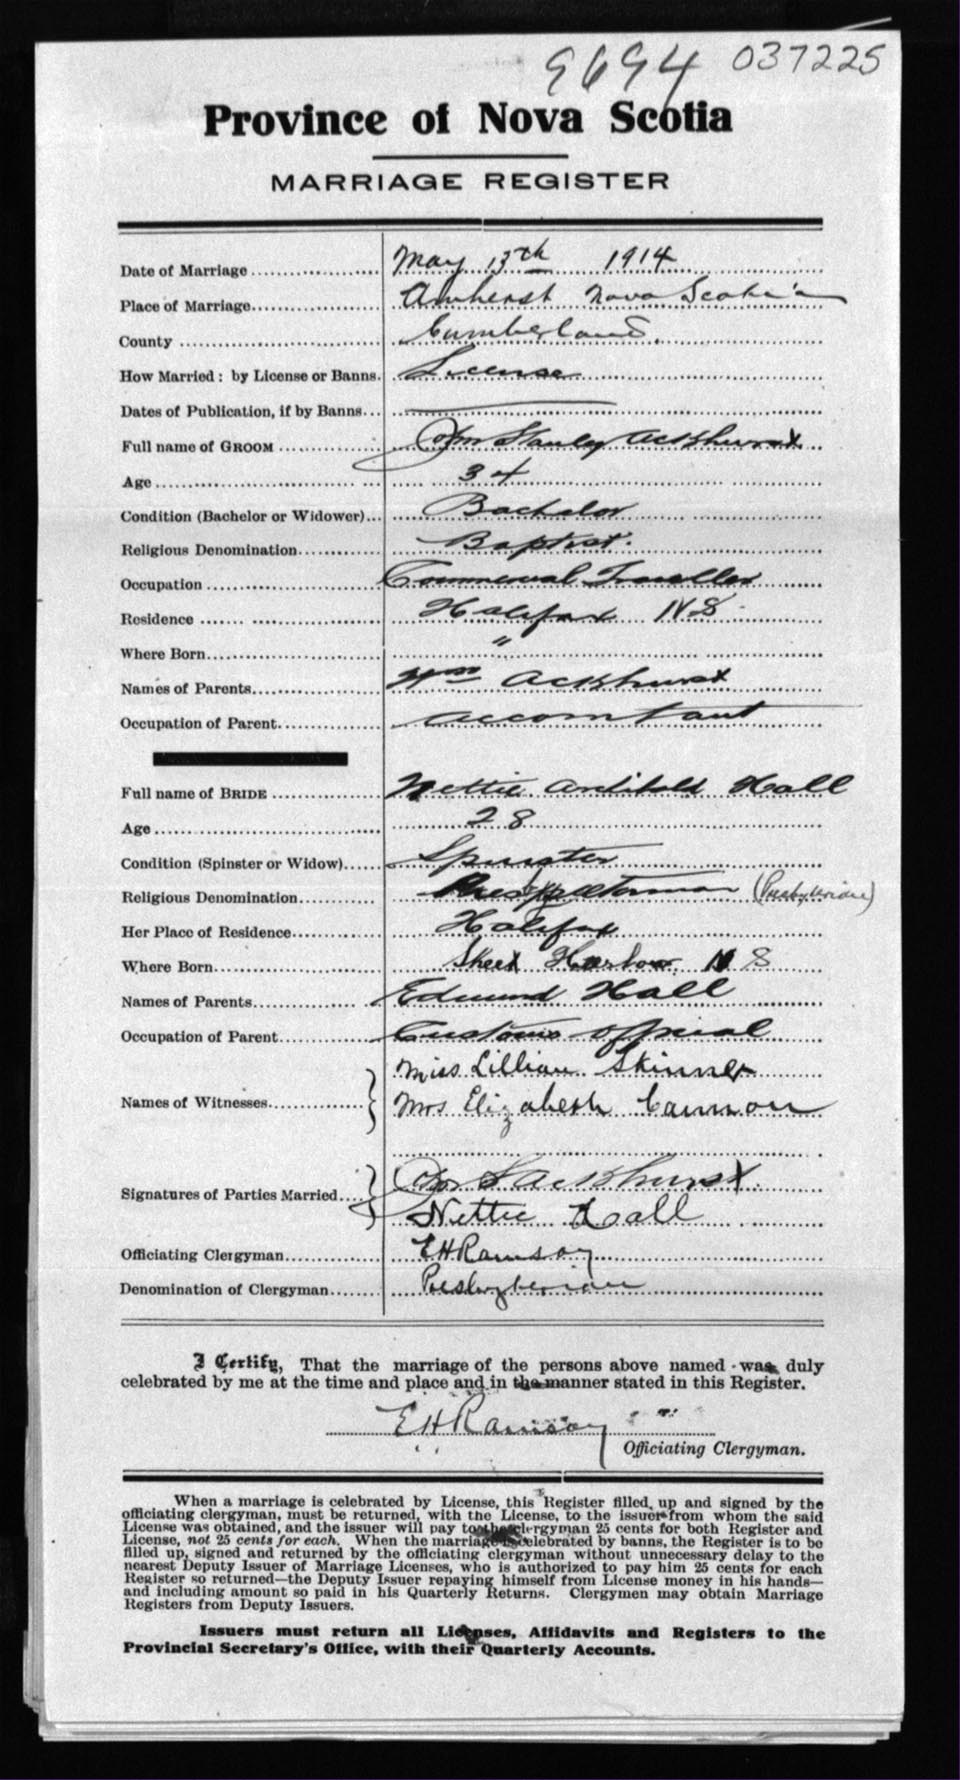 9694 037225
Province of Nova Scotia
MARRIAGE REGISTER
Date of Marriage May 13th 1914
Place of Marriage Amherst Nova Scotia
County Cumberland.
How Married: by License or Banns. License
Dates of Publication, if by Banns
Full name of GROOM John Stanley Ackhurst
Age 34
Condition (Bachelor or Widower) Bachelor
Religious Denomination Baptist.
Occupation Commercial Traveller
Residence Halifax N S
Where Born "
Names of Parents Wm Ackhurst
Occupation of Parent Accountant
Full name of BRIDE Nettie Archibald Hall
Age 28
Condition (Spinster or Widow) Spinster
Religious Denomination (Presbyterian)
Her Place of Residence Halifax
Where Born Sheet Harbor N S
Names of Parents Edmund Hall
Occupation of Parent Customs Official
Names of Witnesses Miss Lillian Skinner
Mrs Elizabeth Cannon
Signatures of Parties Married Jno S Ackhurst.
Nettie Hall
Officiating Clergyman E H Ramsay
Denomination of Clergyman Presbyterian
I Certify, That the marriage of the persons above named was duly
celebrated by me at the time and place and in the manner stated in this Register.
E H Ramsay
Officiating Clergyman.
When a marriage is celebrated by License, this Register filled up and signed by the
officiating clergyman, must be returned, with the License, to the issuer from whom the said
License was obtained, and the issuer will pay to the clergyman 25 cents for both Register and
License, not 25 cents for each. When the marriage is celebrated by banns, the Register is to be
filled up, signed and returned by the officiating clergyman without unnecessary delay to the
nearest Deputy Issuer of Marriage Licenses, who is authorized to pay him 25 cents for each
Register so returned—the Deputy Issuer repaying himself from License money in his hands—
and including amount so paid in his Quarterly Returns. Clergymen may obtain Marriage
Registers from Deputy Issuers.
Issuers must return all Licenses, Affidavits and Registers to the
Provincial Secretary's Office, with their Quarterly Accounts.